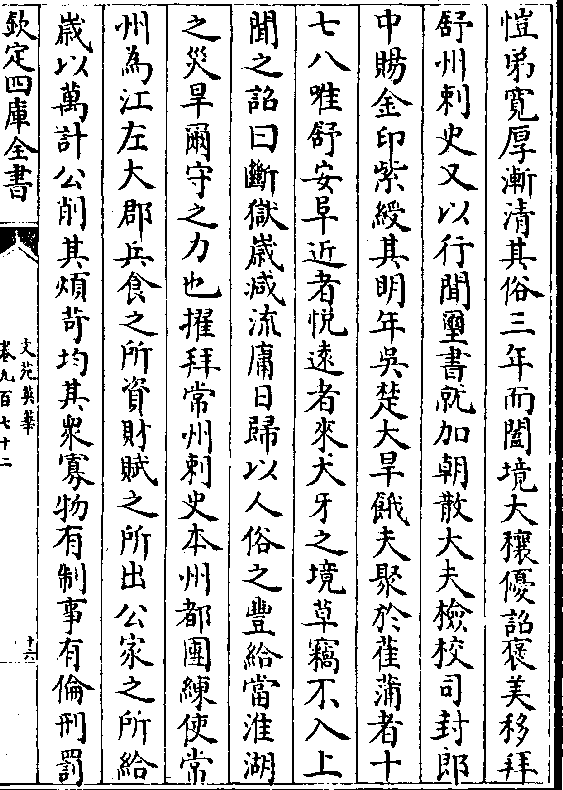 愷弟寛厚漸清其俗三年而闔境大穰優詔褒美移拜
舒州刺史又以行聞璽書就加朝散大夫檢校司封郎
中賜金印紫綬其明年吳楚大旱餓夫聚於萑蒲者十
七八唯舒安阜近者悅遠者來犬牙之境草竊不入上
聞之詔曰斷獄嵗减流庸日歸以人俗之豐給當淮湖
之災旱爾守之力也擢拜常州刺史本州都團練使常
州為江左大郡兵食之所資財賦之所出公家之所給
嵗以萬計公削其煩苛均其衆寡物有制事有倫刑罰
欽定四庫全書
文苑英華
卷九百七十二
十六